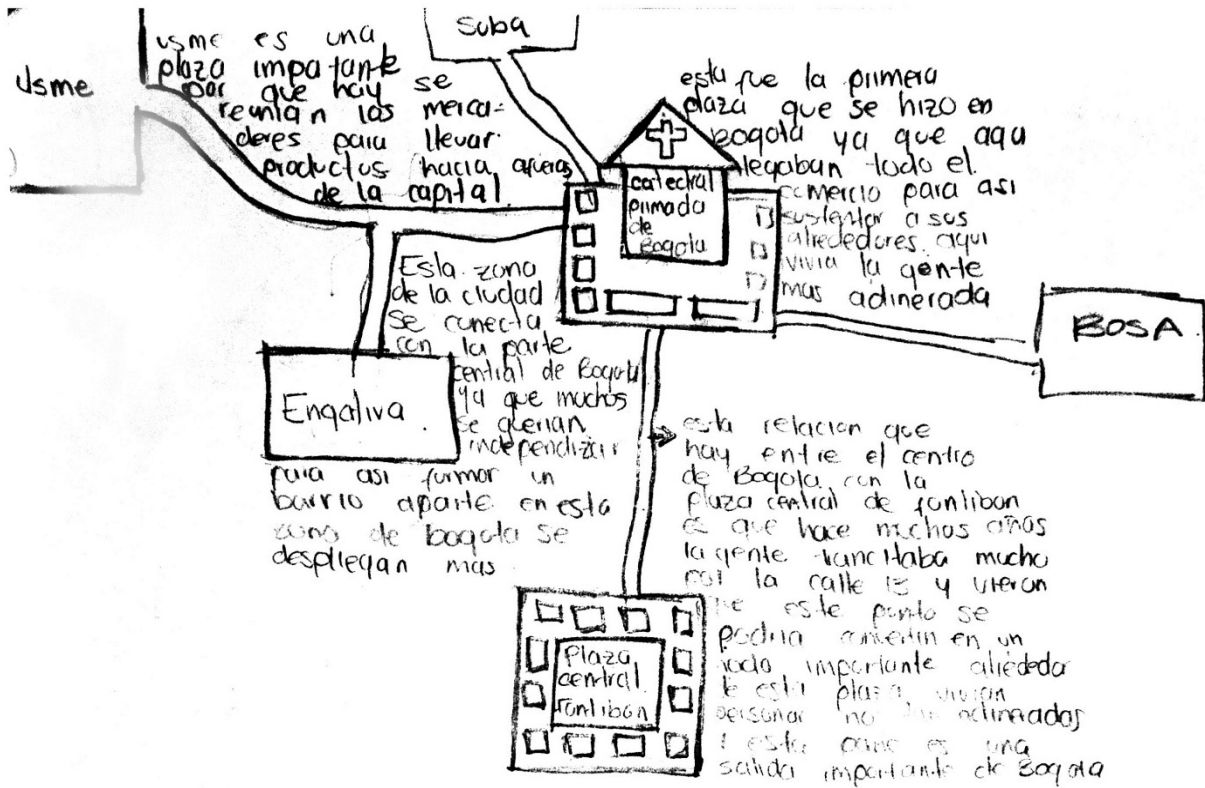 usme
usme es una
plaza impotante
por que hay se
reunian los merca-
deres para llevar
productos hacia afueras
de la capital.
suba
esta fue la primera
plaza que se hizo en
Bogota ya que aqu
llegaban todo el
comercio para asi
sustentar a sus
alrededores. aqui
vivia la gente
mas adinerada
catedral
primada
de
Bogota
BOSA
Esta zona
de la ciudad
se conecta
con la parte
central de Bogota
ya que muchos
se querian
independizar
para asi formar un
barrio aparte en esta
zona de bogota se
despliegan mas
Engativa
esta relacion que
hay entre el centro
de Bogota con la
plaza central de fontibon
es que hace muchos años
la gente trancitaba mucho
por la calle 13 y vieron
que este punto se
podria convertir en un
nodo importante alrededo
de esta plaza vivian
personas no tan adineradas
y esta parte es una
salida importante de Bogota
Plaza
central
fontibon